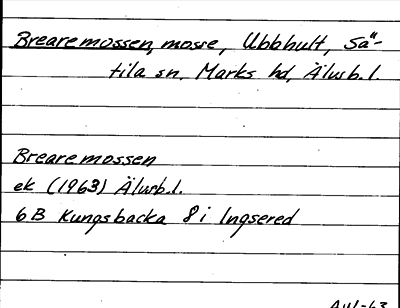 Brearemossen, mosse, Ubbhult, Sä-
tila sn. Marks hd, Älvsb. l.
Brearemossen
ek (1963) Älvsb. l.
6B Kungsbacka 8i Ingsered